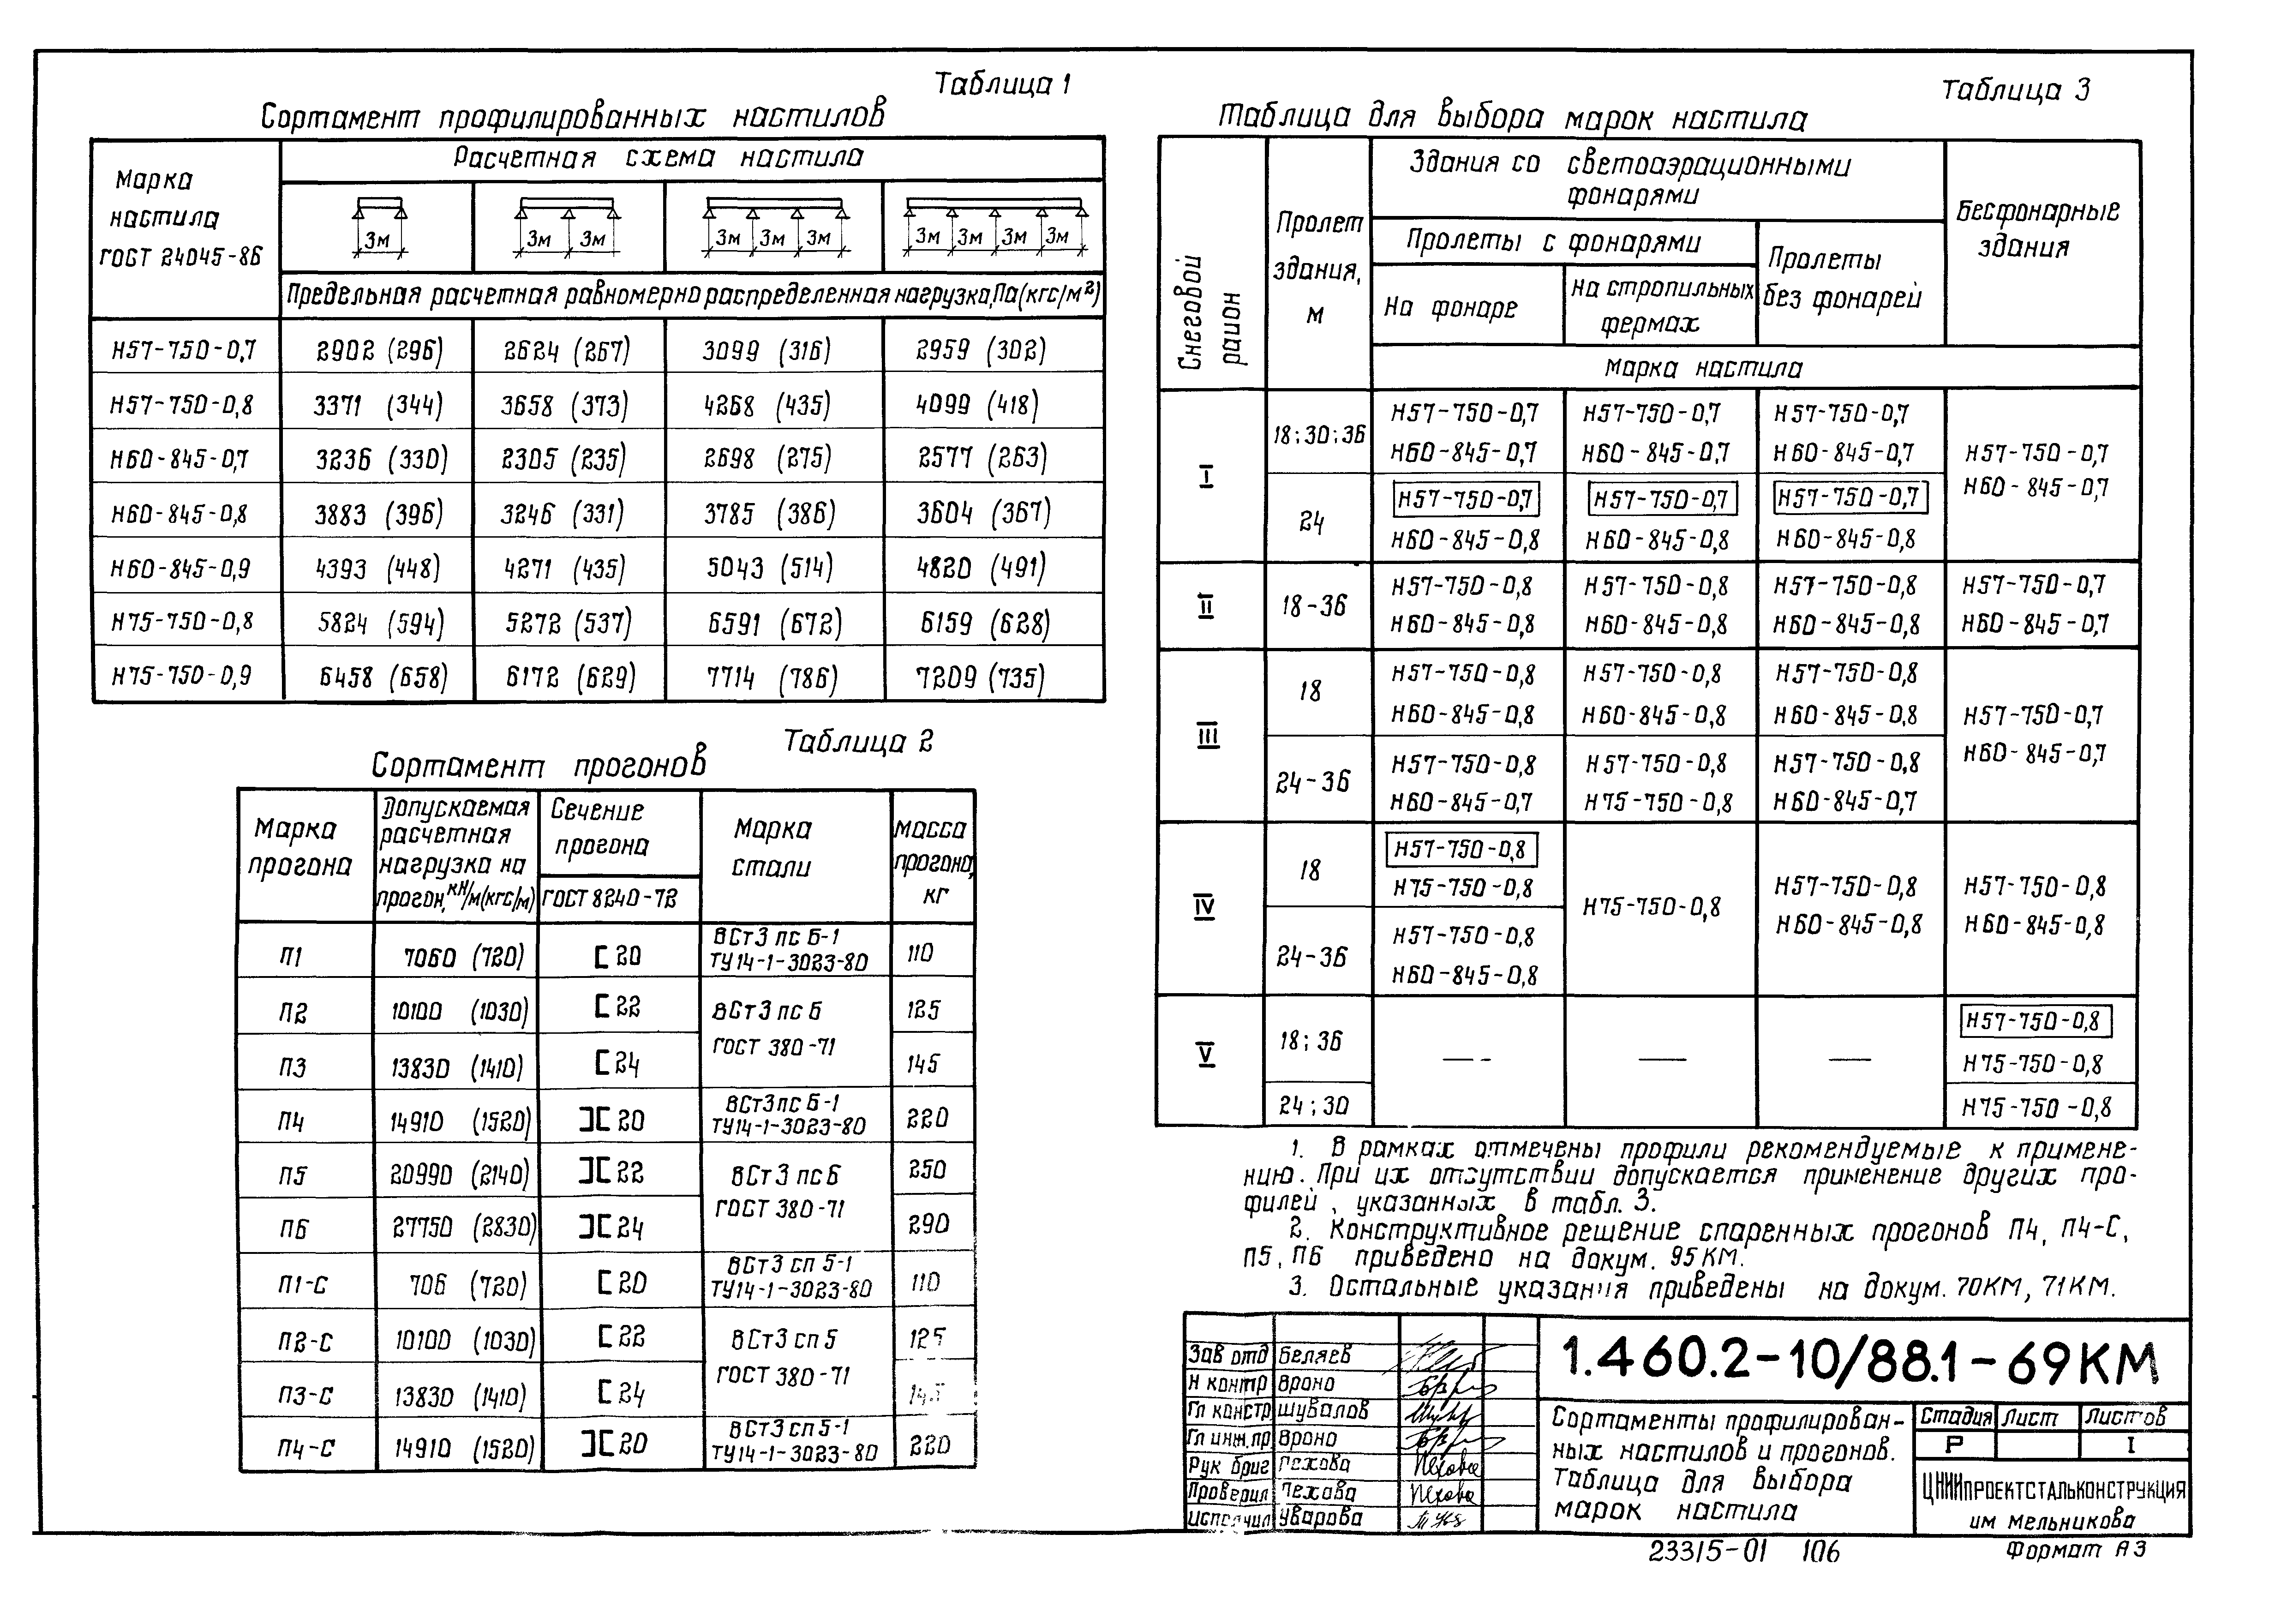 Таблица 1
Сортамент профилированных настилов
Марка настила ГОСТ 24045-86
Расчетная схема настила
3м
3м 3м
3м 3м 3м
3м 3м 3м 3м
Предельная расчетная равномерно распределенная нагрузка, Па (кгс/м²)
Н57-750-0,7 2902 (296) 2624 (267) 3099 (316) 2959 (302)
Н57-750-0,8 3371 (344) 3658 (373) 4268 (435) 4099 (418)
Н60-845-0,7 3236 (330) 2305 (235) 2698 (275) 2577 (263)
Н60-845-0,8 3883 (396) 3246 (331) 3785 (386) 3604 (367)
Н60-845-0,9 4393 (448) 4271 (435) 5043 (514) 4820 (491)
Н75-750-0,8 5824 (594) 5272 (537) 6591 (672) 6159 (628)
Н75-750-0,9 6458 (658) 6172 (629) 7714 (786) 7209 (735)
Таблица 2
Сортамент прогонов
Марка прогона
Допускаемая расчетная нагрузка на прогон, кн/м (кгс/м)
Сечение прогона
ГОСТ 8240-72
Марка стали
Масса прогона, кг
П1 7060 (720) [20 ВСт3 пс 6-1 ТУ14-1-3023-80 110
П2 10100 (1030) [22 ВСт3 пс 6 125
П3 13830 (1410) [24 ГОСТ 380-71 145
П4 14910 (1520) ][20 ВСт3пс 6-1 ТУ14-1-3023-80 220
П5 20990 (2140) ][22 ВСт3 пс6 250
П6 27750 (2830) ][24 ГОСТ 380-71 290
П1-С 706 (720) [20 ВСт3 сп 5-1 ТУ14-1-3023-80 110
П2-С 10100 (1030) [22 ВСт3 сп 5 125
П3-С 13830 (1410) [24 ГОСТ 380-71 145
П4-С 14910 (1520) ][20 ВСт3 сп 5-1 ТУ14-1-3023-80 220
Таблица 3
Таблица для выбора марок настила
Снеговой район
Пролет здания, м
Здания со светоаэрационными фонарями
Бесфонарные здания
Пролеты с фонарями
Пролеты без фонарей
На фонаре
На стропильных фермах
Марка настила
I
18; 30; 36
Н57-750-0,7 Н57-750-0,7 Н57-750-0,7
Н60-845-0,7 Н60-845-0,7 Н60-845-0,7
Н57-750-0,7
Н60-845-0,7
24
Н57-750-0,7 Н57-750-0,7 Н57-750-0,7
Н60-845-0,8 Н60-845-0,8 Н60-845-0,8
II
18-36
Н57-750-0,8 Н57-750-0,8 Н57-750-0,8 Н57-750-0,7
Н60-845-0,8 Н60-845-0,8 Н60-845-0,8 Н60-845-0,7
III
18
Н57-750-0,8 Н57-750-0,8 Н57-750-0,8
Н60-845-0,8 Н60-845-0,8 Н60-845-0,8
Н57-750-0,7
Н60-845-0,7
24-36
Н57-750-0,8 Н57-750-0,8 Н57-750-0,8
Н60-845-0,7 Н75-750-0,8 Н60-845-0,7
IV
18
Н57-750-0,8
Н75-750-0,8
Н75-750-0,8
Н57-750-0,8 Н57-750-0,8
Н60-845-0,8 Н60-845-0,8
24-36
Н57-750-0,8
Н60-845-0,8
V
18; 36
— - — —
Н57-750-0,8
Н75-750-0,8
24; 30
Н75-750-0,8
1. В рамках отмечены профили рекомендуемые к примене-
нию. При их отсутствии допускается применение других про-
филей, указанных в табл. 3.
2. Конструктивное решение спаренных прогонов П4, П4-С,
П5, П6 приведено на докум. 95КМ.
3. Остальные указания приведены на докум. 70КМ, 71КМ.
Зав отд Беляев
Н контр Вроно
Гл констр Шувалов
Гл инж.пр. Вроно
Рук бриг Пехова Пехова
Проверил Пехова Пехова
Исполнил Уварова
1.460.2-10/88.1-69КМ
Сортаменты профилирован-
ных настилов и прогонов.
Таблица для выбора
марок настила
Стадия Лист Листов
Р 1
ЦНИИПРОЕКТСТАЛЬКОНСТРУКЦИЯ
им Мельникова
23315-01 106
Формат А3